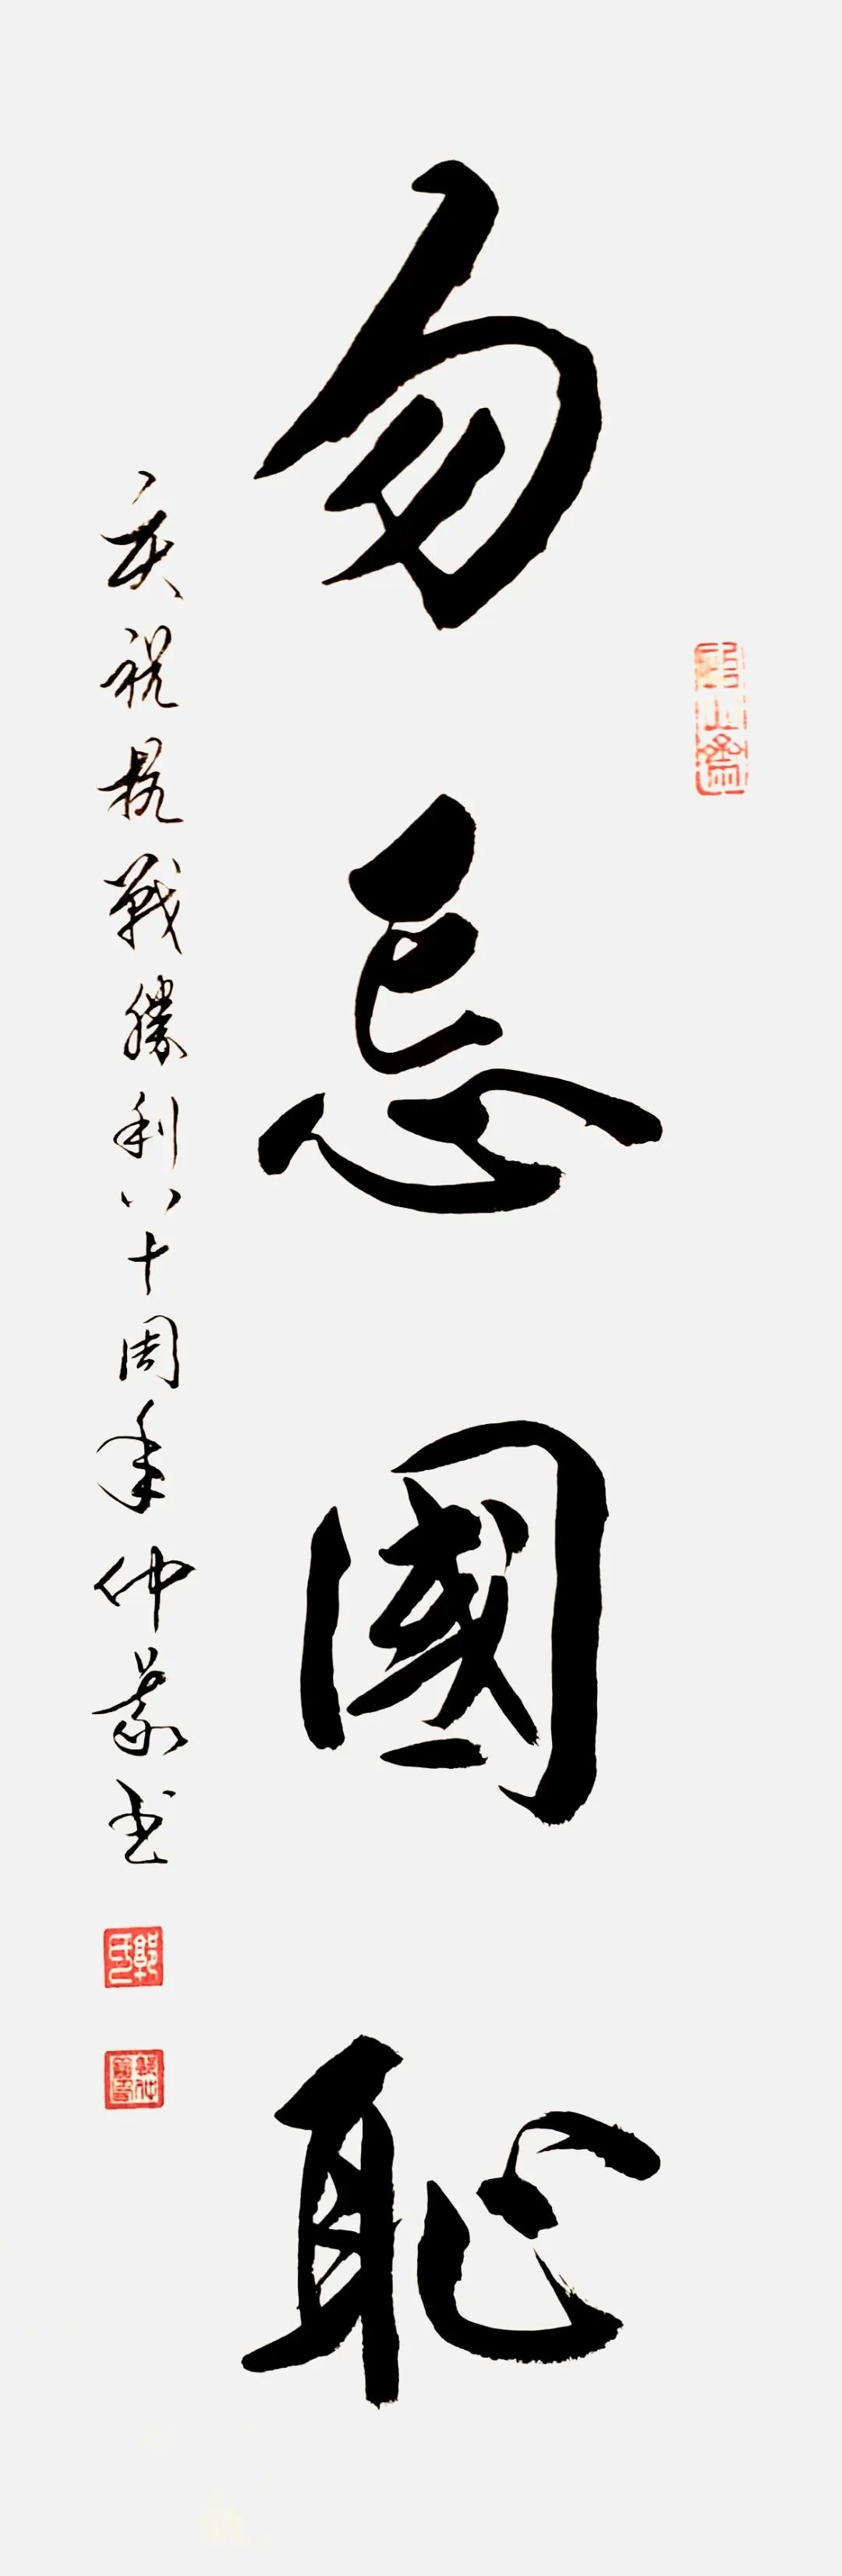 勿忘國恥
庆祝抗戰勝利八十周年仲蒙书